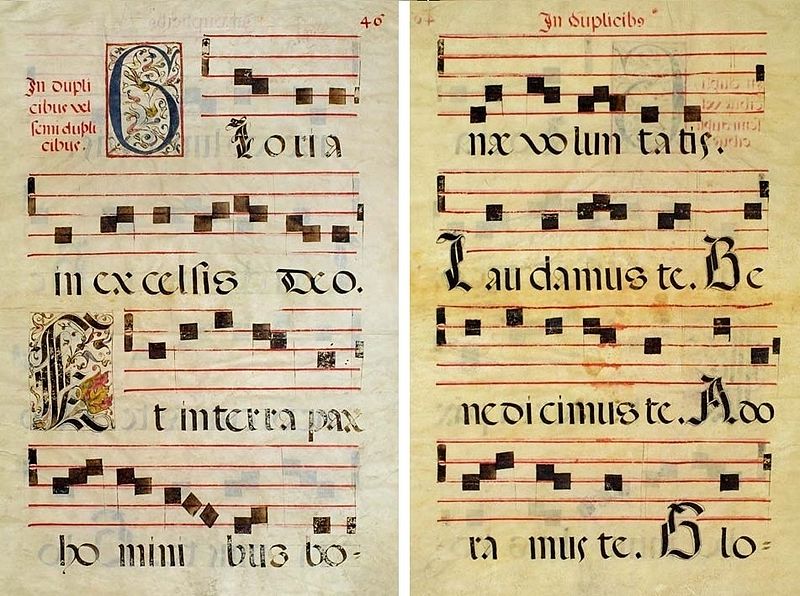 46
In dupli
cibus vel
semi dupli
cibus.
G loria
in excelsis Deo.
Et in terra pax
ho mini bus bo-
In duplicibs
næ volun ta tis.
Lau damus te. Be
nedi cimus te. Ado
ra mus te. Glo=